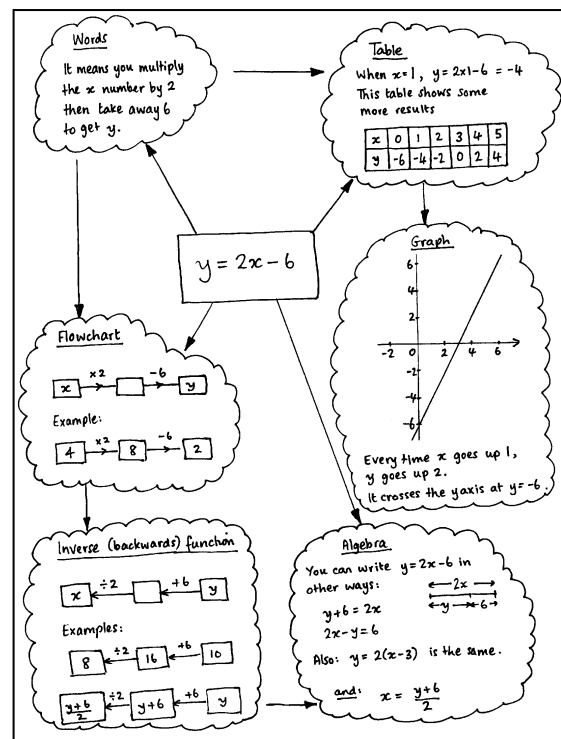 Words
It means you multiply
the x number by 2
then take away 6
to get y.
Table
When x=1, y=2x1-6 = -4
This table shows some
more results
x 0 1 2 3 4 5
y -6 -4 -2 0 2 4
y = 2x - 6
Graph
6
4
2
-2 0 2 4 6
-2
-4
-6
Every time x goes up 1,
y goes up 2.
It crosses the y axis at y=-6.
Flowchart
×2 -6
x y
Example:
×2 -6
4 8 2
Inverse (backwards) function
÷2 +6
x y
Examples:
÷2 +6
8 16 10
÷2 +6
y+6/2 y+6 y
Algebra
You can write y=2x-6 in
other ways:
2x
y+6 = 2x
y 6
2x-y=6
Also: y=2(x-3) is the same.
and: x = y+6/2